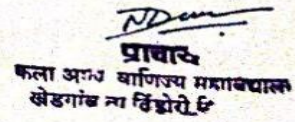 प्राचार्य
कला आणि वाणिज्य महाविद्यालय
खेडगांव ता दिंडोरी